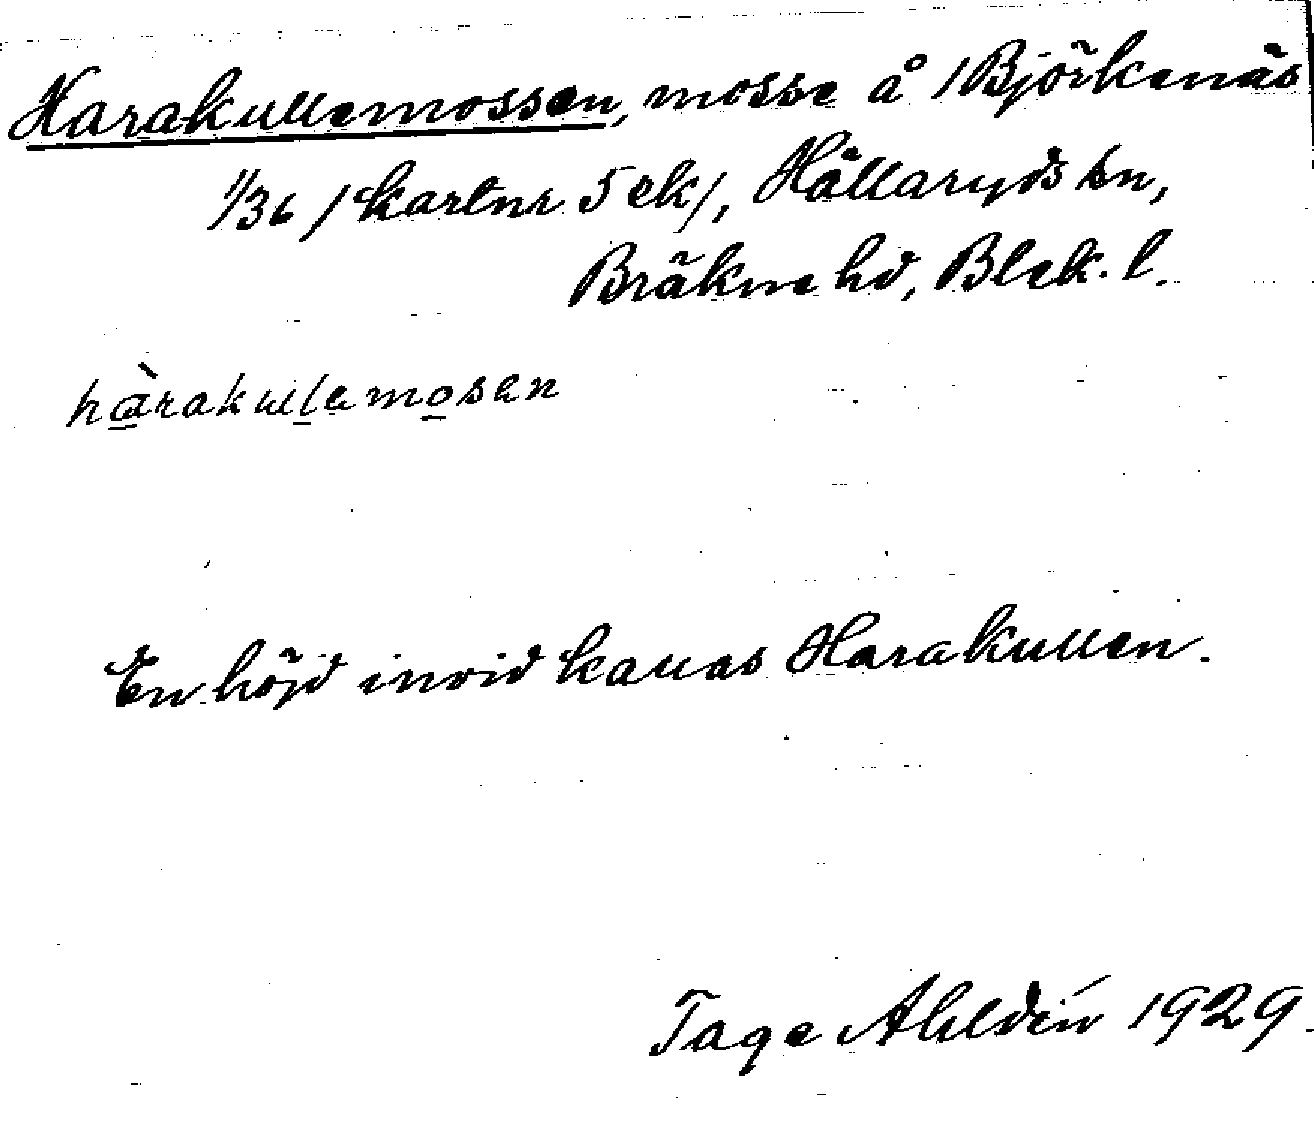 Harakullemossen, mosse å 1 Björkenäs
1/36 /kartnr 5 ek/, Hällaryds sn,
Bräkne hd, Blek. l.
hàrakullemosen
En höjd invid kallas Harakullen.
Tage Ahldén 1929.